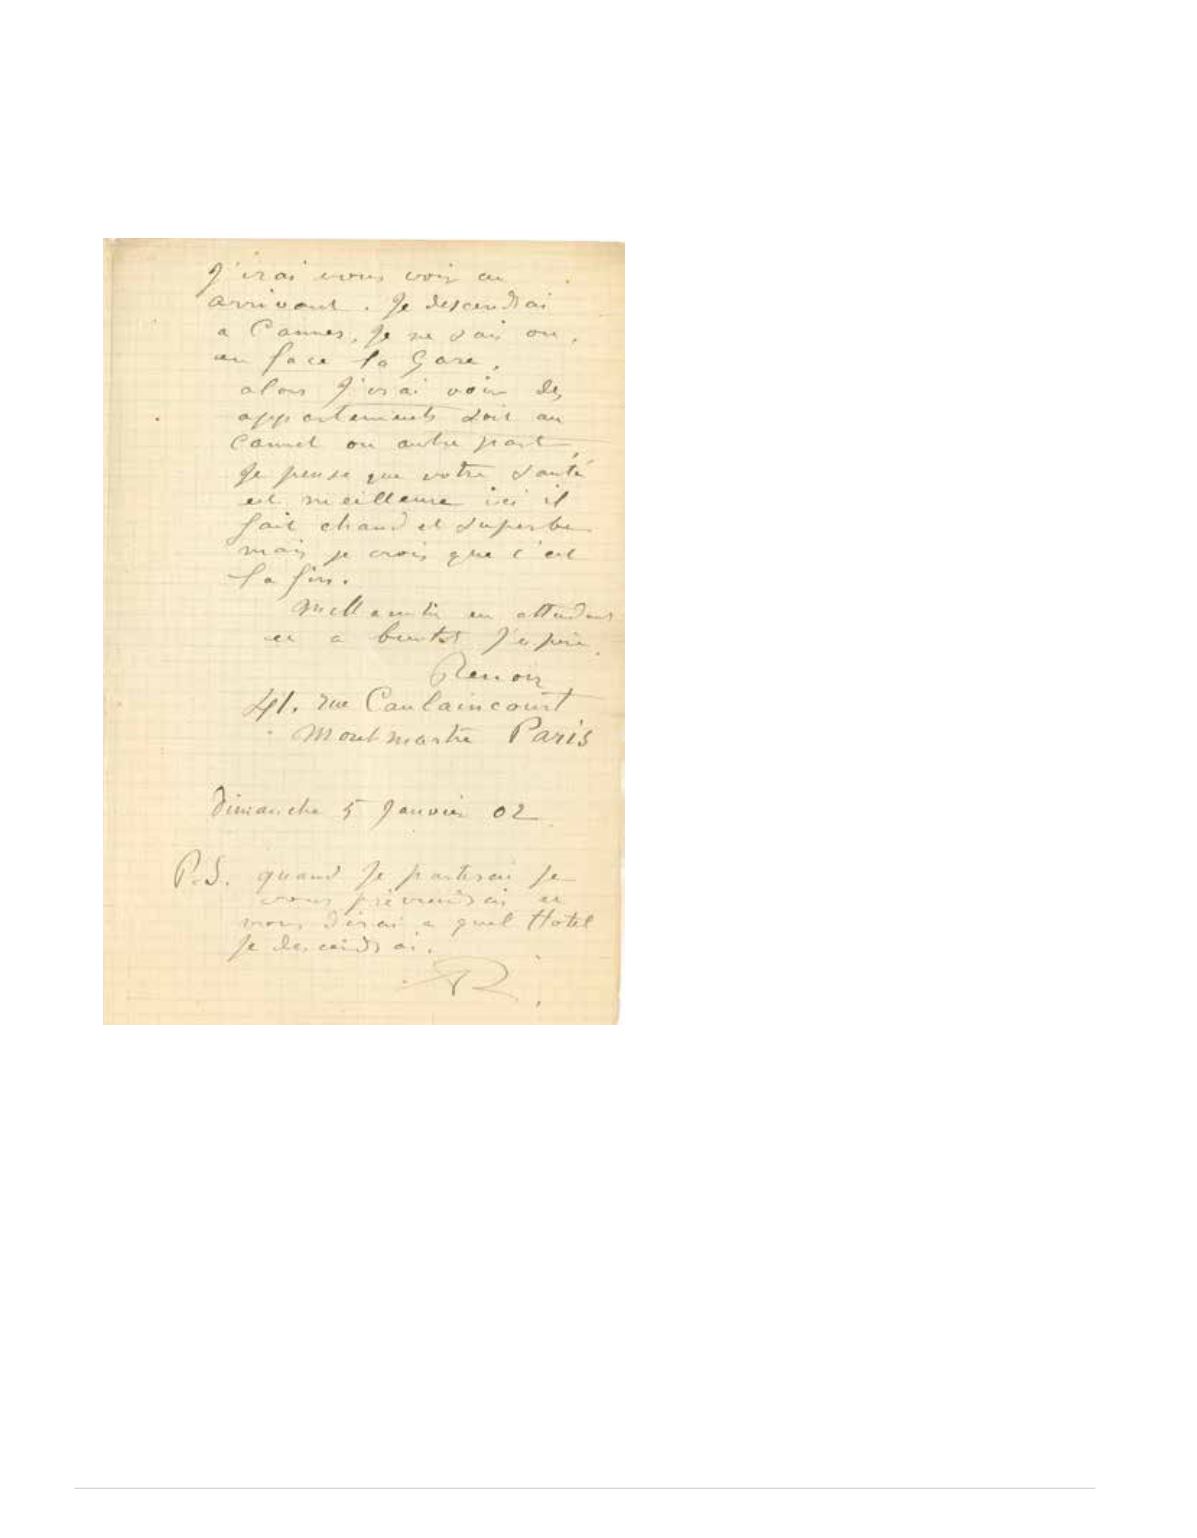 J'irai vous voir en
arrivant. Je descendrai
a Cannes, je ne sais ou,
en face la Gare,
alors j'irai voir des
appartements soit au
Cannet ou autre part,
Je pense que votre santé
est meilleure ici il
fait chaud et superbe
mais je crois que c'est
la fin.
Mille amitiés en attendant
et a bientot j'espère.
Renoir
41. rue Caulaincourt
Montmartre Paris
Dimanche 5 Janvier 02
P.S. quand Je partirai Je
vous préviendrai et
vous dirai a quel Hotel
Je descendrai.
R.